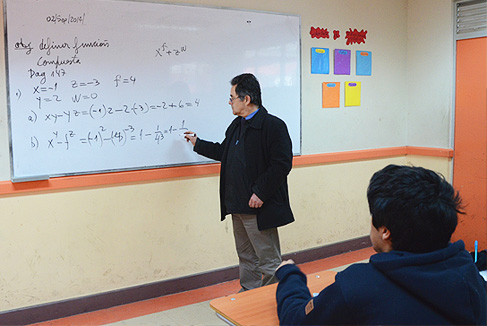 02/Sep/2014/
obj definir función
Compuesta
x^f + z^w
Pag 147
1) x=-1 z=-3 f=4
y=2 w=0
a) xy-yz=(-1)2-2(-3)=-2+6=4
b) x^y-f^z=(-1)^2-(4)^-3=1-1/4^3=1-1